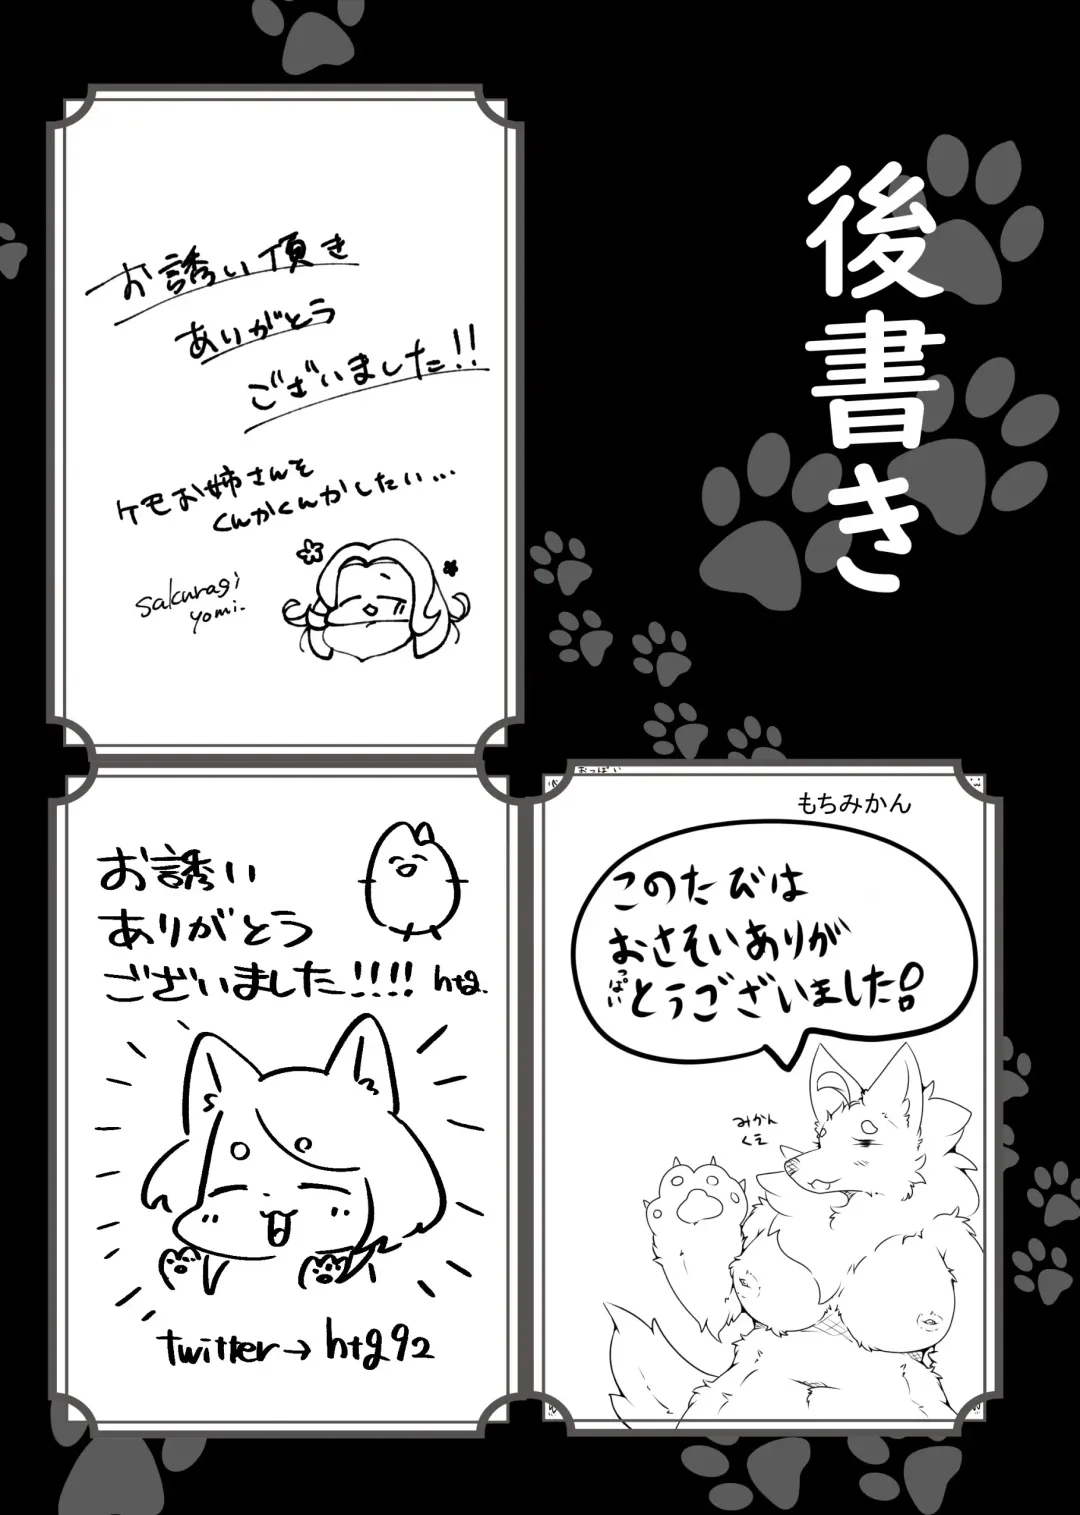 後書き
お誘い頂き
ありがとう
ございました!!
ケモお姉さんを
くんかくんかしたい…
sakuragi
yomi.
おっぱい
もちみかん
このたびは
おさそいありが
っぱい
とうございました!
みかん
くえ
お誘い
ありがとう
ございました!!!! htg.
twitter→htg92